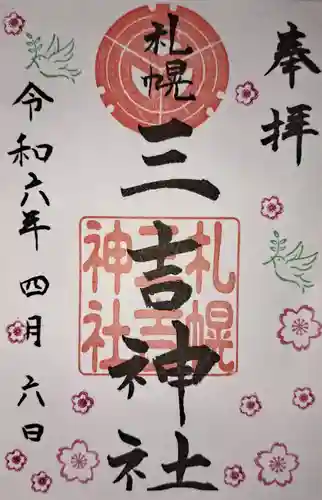 奉拝
札幌
三吉神社
札幌
三吉
神社
令和六年四月六日